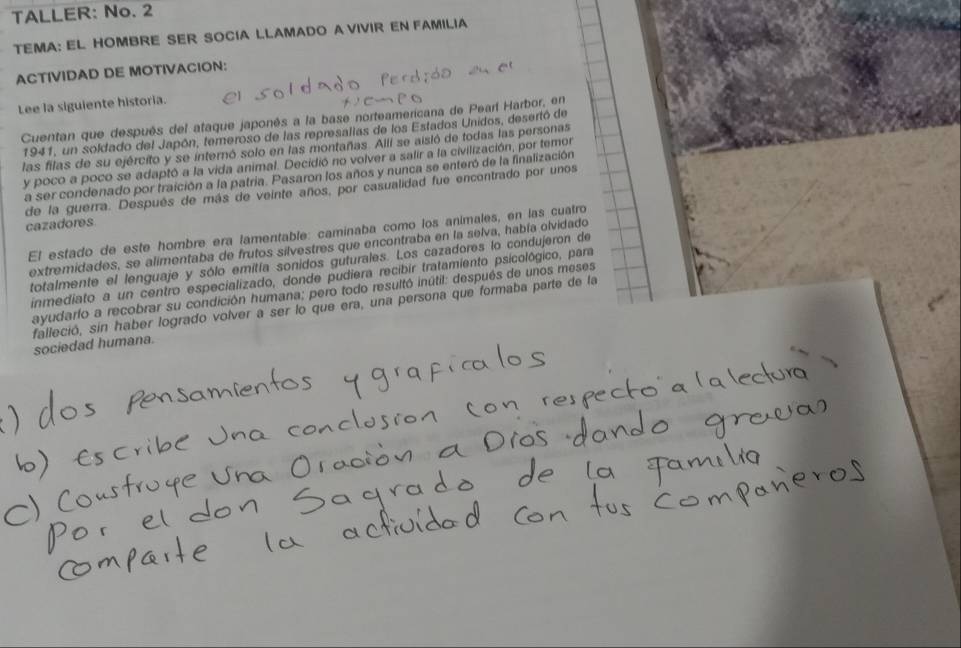 TALLER: No. 2
TEMA: EL HOMBRE SER SOCIA LLAMADO A VIVIR EN FAMILIA
ACTIVIDAD DE MOTIVACION:
Lee la siguiente historia.
el soldado perdido en el
tiempo
Cuentan que después del ataque japonés a la base norteamericana de Pearl Harbor, en
1941, un soldado del Japón, temeroso de las represalias de los Estados Unidos, desertó de
las filas de su ejército y se internó solo en las montañas. Allí se aisló de todas las personas
y poco a poco se adaptó a la vida animal. Decidió no volver a salir a la civilización, por temor
a ser condenado por traición a la patria. Pasaron los años y nunca se enteró de la finalización
de la guerra. Después de más de veinte años, por casualidad fue encontrado por unos
cazadores.
El estado de este hombre era lamentable: caminaba como los animales, en las cuatro
extremidades, se alimentaba de frutos silvestres que encontraba en la selva, había olvidado
totalmente el lenguaje y sólo emitía sonidos guturales. Los cazadores lo condujeron de
inmediato a un centro especializado, donde pudiera recibir tratamiento psicológico, para
ayudarlo a recobrar su condición humana; pero todo resultó inútil: después de unos meses
falleció, sin haber logrado volver a ser lo que era, una persona que formaba parte de la
sociedad humana.
) dos pensamientos y graficalos
b) escribe una conclusion con respecto a la lectura
c) Construye una Oración a Dios dando gracias
por el don Sagrado de la familia
comparte la actividad con tus compañeros